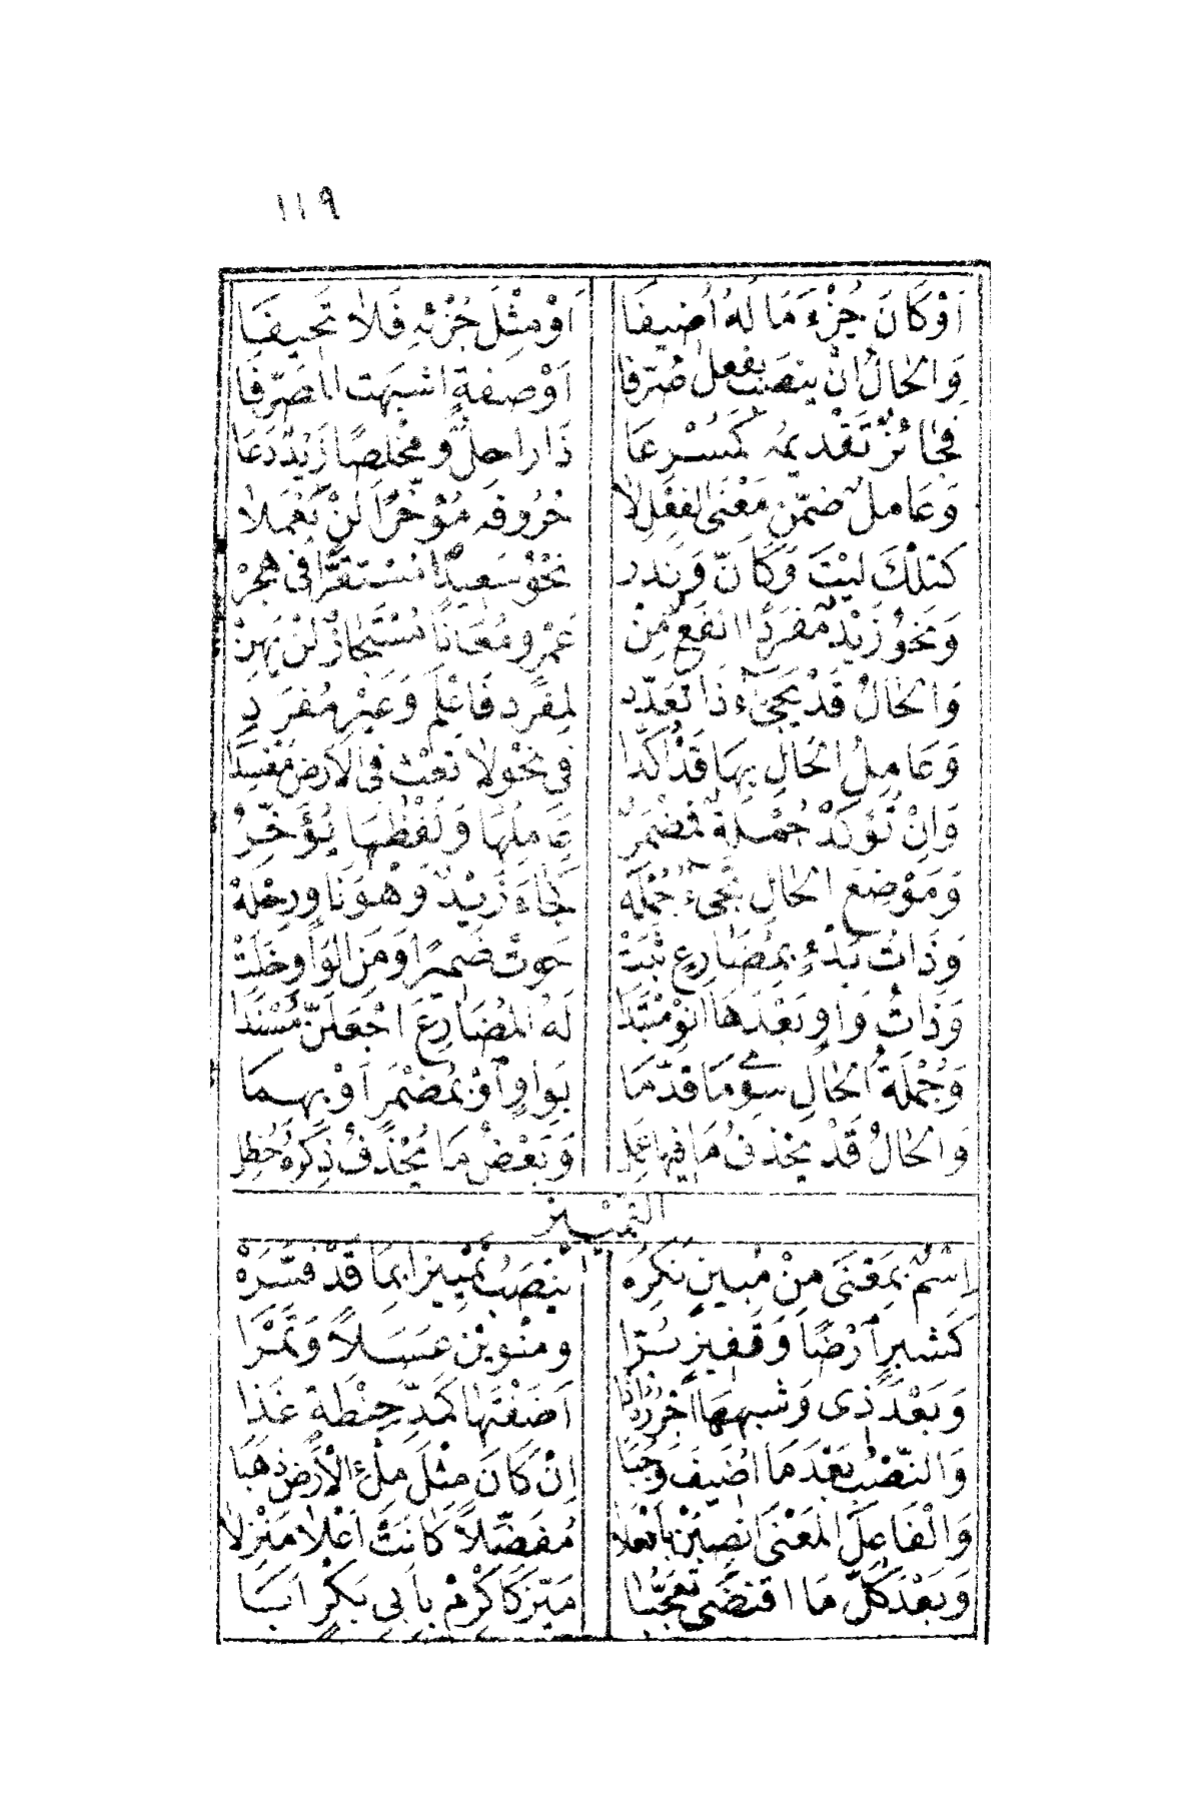 ١١٩
اَوْ كَانَ جُزْءَ مَا لَهُ اُضِيفَا اَوْ مِثْلَ جُزْئِهِ فَلَا تَحِيفَا
وَالحَالُ اِنْ يُنْصَبْ بِفِعْلٍ صُرِّفَا اَوْ صِفَةٍ اَشْبَهَتِ المُصَرَّفَا
فَجَائِزٌ تَقْدِيمُهُ كَمُسْرِعَا ذَا رَاحِلٌ وَمُخْلِصًا زَيْدٌ دَعَا
وَعَامِلٌ ضُمِّنَ مَعْنَى الفِعْلِ لَا حُرُوفَهُ مُؤَخَّرًا لَنْ يَعْمَلَا
كَتِلْكَ لَيْتَ وَكَاَنَّ وَنَدَر نَحْوُ سَعِيدٌ مُسْتَقِرًّا فِى هَجَرْ
وَنَحْوُ زَيْدٌ مُفْرَدًا اَنْفَعُ مِنْ عَمْرٍو مُعَانًا مُسْتَجَازٌ لَنْ يَهِنْ
وَالحَالُ قَدْ يَجِىءُ ذَا تَعَدُّدِ لِمُفْرَدٍ فَاعْلَمْ وَغَيْرِ مُفْرَدِ
وَعَامِلُ الحَالِ بِهَا قَدْ اُكِّدَا فِى نَحْوِ لَا تَعْثَ فِى الاَرْضِ مُفْسِدَا
وَاِنْ تُؤَكِّدْ جُمْلَةً فَمُضْمَرُ عَامِلُهَا وَلَفْظُهَا يُؤَخَّرُ
وَمَوْضِعَ الحَالِ تَجِىءُ جُمْلَه كَجَاءَ زَيْدٌ وَهْوَ نَاوٍ رِحْلَهْ
وَذَاتُ بَدْءٍ بِمُضَارِعٍ ثَبَتْ حَوَتْ ضَمِيرًا وَمِنَ الوَاوِ خَلَتْ
وَذَاتُ وَاوٍ بَعْدَهَا انْوِ مُبْتَدَا لَهُ المُضَارِعَ اجْعَلَنَّ مُسْنَدَا
وَجُمْلَةُ الحَالِ سِوَى مَا قُدِّمَا بِوَاوٍ اَوْ بِمُضْمَرٍ اَوْ بِهِمَا
وَالحَالُ قَدْ يُحْذَفُ مَا فِيهَا عَمِلَ وَبَعْضُ مَا يُحْذَفُ ذِكْرُهُ حُظِل
التَّمْيِيز
اِسْمٌ بِمَعْنَى مِنْ مُبِينٌ نَكِرَه يُنْصَبُ تَمْيِيزًا بِمَا قَدْ فَسَّرَهْ
كَشِبْرٍ اَرْضًا وَقَفِيزٍ بُرَّا وَمَنَوَيْنِ عَسَلًا وَتَمْرَا
وَبَعْدَ ذِى وَشِبْهِهَا اجْرُرْهُ اِذَا اَضَفْتَهَا كَمُدِّ حِنْطَةٍ غِذَا
وَالنَّصْبُ بَعْدَ مَا اُضِيفَ وَجَبَا اِنْ كَانَ مِثْلَ مِلْءُ الْاَرْضِ ذَهَبَا
وَالْفَاعِلَ المَعْنَى انْصِبَنْ بِاَفْعَلَا مُفَضِّلًا كَاَنْتَ اَعْلَا مَنْزِلَا
وَبَعْدَ كُلِّ مَا اقْتَضَى تَعَجُّبَا مَيِّزْ كَاَكْرِمْ بِاَبِى بَكْرٍ اَبَا